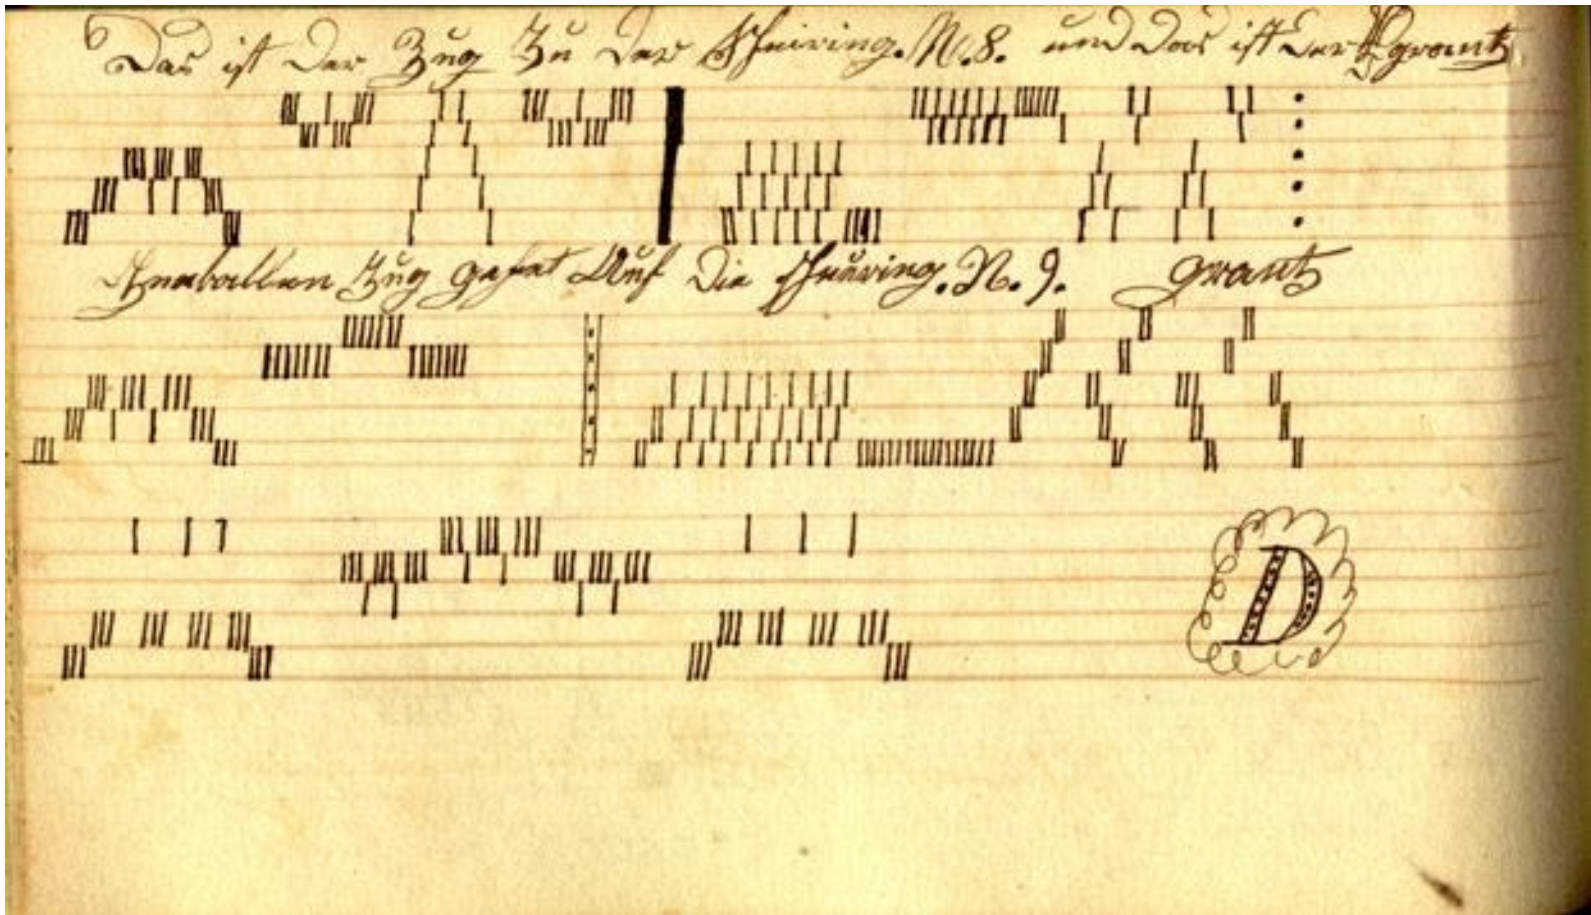 Das ist der Zug Zu der Schniring. N. 8. und das ist der grantz
Zug gehet Auf die Schnüring. N. 9. grantz
D